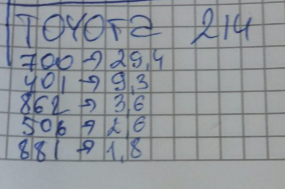 TOYOTA 214
700 → 29,4
401 → 9,3
862 → 3,6
506 → 2,6
881 → 1,8